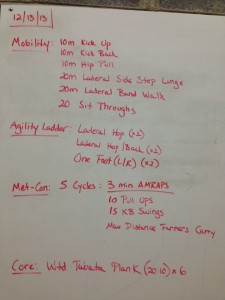 12/13/13
Mobility: 10m Kick Up
10m Kick Back
10m Hip Pull
20m Lateral Side Step Lunge
20m Lateral Band Walk
20 Sit Throughs
Agility Ladder: Lateral Hop (x2)
Lateral Hop/Back (x2)
One Foot (L/R) (x2)
Met-Con: 5 Cycles: 3 min AMRAPS
10 Pull Ups
15 KB Swings
Max Distance Farmers Carry
Core: Wtd Tabata Plank (20:10) x 6